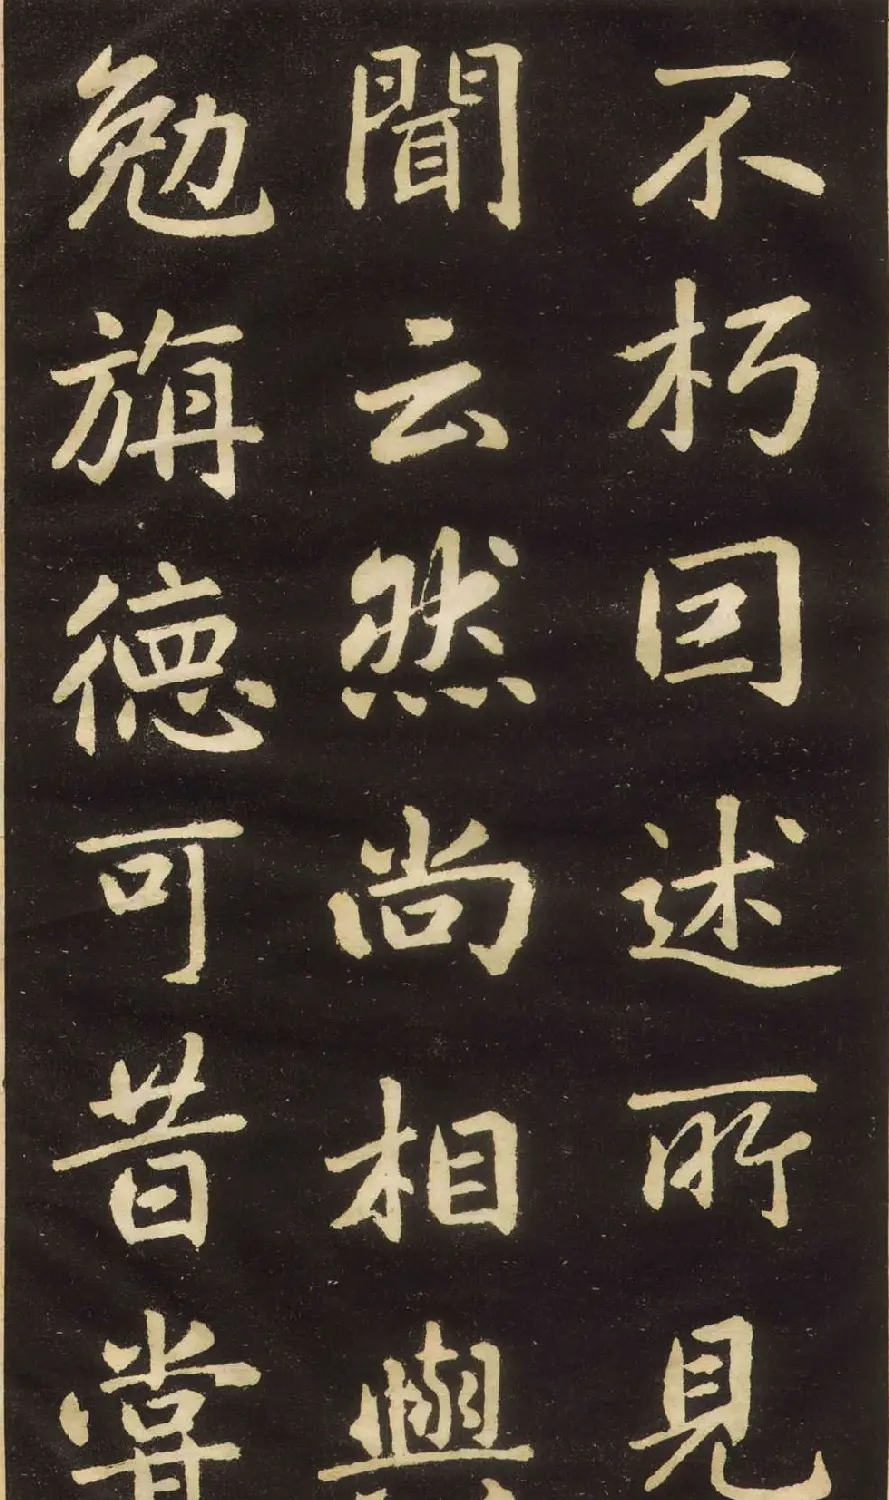 不朽因述所見
聞云然尚相與
勉旃德可昔嘗